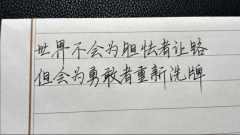 世界不会为胆怯者让路
但会为勇敢者重新洗牌